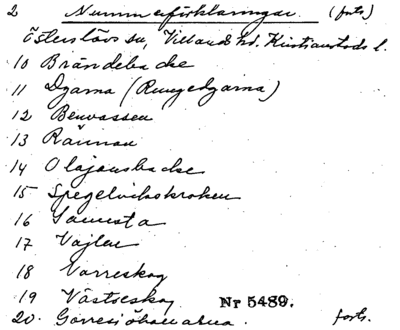 2 Nummerförklaringar. (forts)
Österslövs sn, Villands hd. Kristianstads l.
10 Brändebacke
11 Dgarna (Rungedgarna)
12 Benvassen
13 Rännan
14 Olajonsbacke
15 Spegelvikskroken
16
17 Vajlen
18 Varreskog
19 Västseskog Nr 5489.
20. forts.